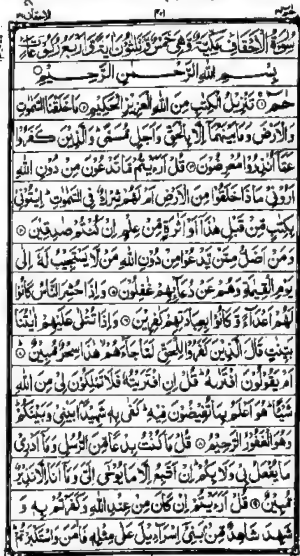 الاحقاف ٤٦ ٣٠١ حٰمٓ ٢٦
سُوْرَةُ الْاَحْقَافِ مَكِّيَّةٌ وَّهِىَ خَمْسٌ وَّثَلٰثُوْنَ اٰيَةً وَّاَرْبَعُ رُكُوْعَاتٍ
بِسْمِ اللّٰهِ الرَّحْمٰنِ الرَّحِيْمِ
حٰمٓ ۚ تَنْزِيْلُ الْكِتٰبِ مِنَ اللّٰهِ الْعَزِيْزِ الْحَكِيْمِ ۝ مَا خَلَقْنَا السَّمٰوٰتِ
وَالْاَرْضَ وَمَا بَيْنَهُمَاۤ اِلَّا بِالْحَقِّ وَاَجَلٍ مُّسَمًّى ؕ وَالَّذِيْنَ كَفَرُوْا
عَمَّاۤ اُنْذِرُوْا مُعْرِضُوْنَ ۝ قُلْ اَرَءَيْتُمْ مَّا تَدْعُوْنَ مِنْ دُوْنِ اللّٰهِ
اَرُوْنِىْ مَاذَا خَلَقُوْا مِنَ الْاَرْضِ اَمْ لَهُمْ شِرْكٌ فِى السَّمٰوٰتِ ؕ اِيْتُوْنِىْ
بِكِتٰبٍ مِّنْ قَبْلِ هٰذَاۤ اَوْ اَثٰرَةٍ مِّنْ عِلْمٍ اِنْ كُنْتُمْ صٰدِقِيْنَ ۝
وَمَنْ اَضَلُّ مِمَّنْ يَّدْعُوْا مِنْ دُوْنِ اللّٰهِ مَنْ لَّا يَسْتَجِيْبُ لَهٗۤ اِلٰى
يَوْمِ الْقِيٰمَةِ وَهُمْ عَنْ دُعَآئِهِمْ غٰفِلُوْنَ ۝ وَاِذَا حُشِرَ النَّاسُ كَانُوْا
لَهُمْ اَعْدَآءً وَّكَانُوْا بِعِبَادَتِهِمْ كٰفِرِيْنَ ۝ وَاِذَا تُتْلٰى عَلَيْهِمْ اٰيٰتُنَا
بَيِّنٰتٍ قَالَ الَّذِيْنَ كَفَرُوْا لِلْحَقِّ لَمَّا جَآءَهُمْ ۙ هٰذَا سِحْرٌ مُّبِيْنٌ ۝
اَمْ يَقُوْلُوْنَ افْتَرٰىهُ ؕ قُلْ اِنِ افْتَرَيْتُهٗ فَلَا تَمْلِكُوْنَ لِىْ مِنَ اللّٰهِ
شَيْـًٔا ؕ هُوَ اَعْلَمُ بِمَا تُفِيْضُوْنَ فِيْهِ ؕ كَفٰى بِهٖ شَهِيْدًۢا بَيْنِىْ وَبَيْنَكُمْ ؕ
وَهُوَ الْغَفُوْرُ الرَّحِيْمُ ۝ قُلْ مَا كُنْتُ بِدْعًا مِّنَ الرُّسُلِ وَمَاۤ اَدْرِىْ
مَا يُفْعَلُ بِىْ وَلَا بِكُمْ ؕ اِنْ اَتَّبِعُ اِلَّا مَا يُوْحٰۤى اِلَىَّ وَمَاۤ اَنَا اِلَّا نَذِيْرٌ
مُّبِيْنٌ ۝ قُلْ اَرَءَيْتُمْ اِنْ كَانَ مِنْ عِنْدِ اللّٰهِ وَكَفَرْتُمْ بِهٖ وَ
شَهِدَ شَاهِدٌ مِّنْۢ بَنِىْۤ اِسْرَآءِيْلَ عَلٰى مِثْلِهٖ فَاٰمَنَ وَاسْتَكْبَرْتُمْ ؕ